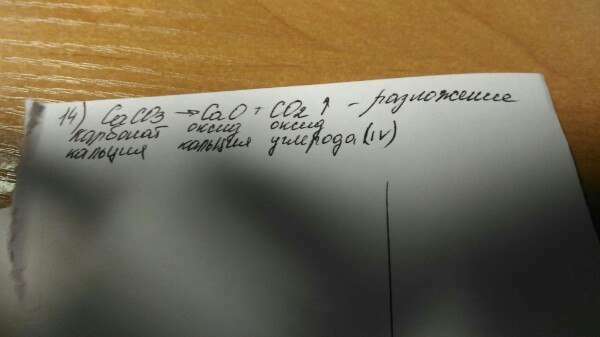 14) CaCO3 → CaO + CO2 ↑ - разложение
карбонат оксид оксид
кальция кальция углерода (IV)